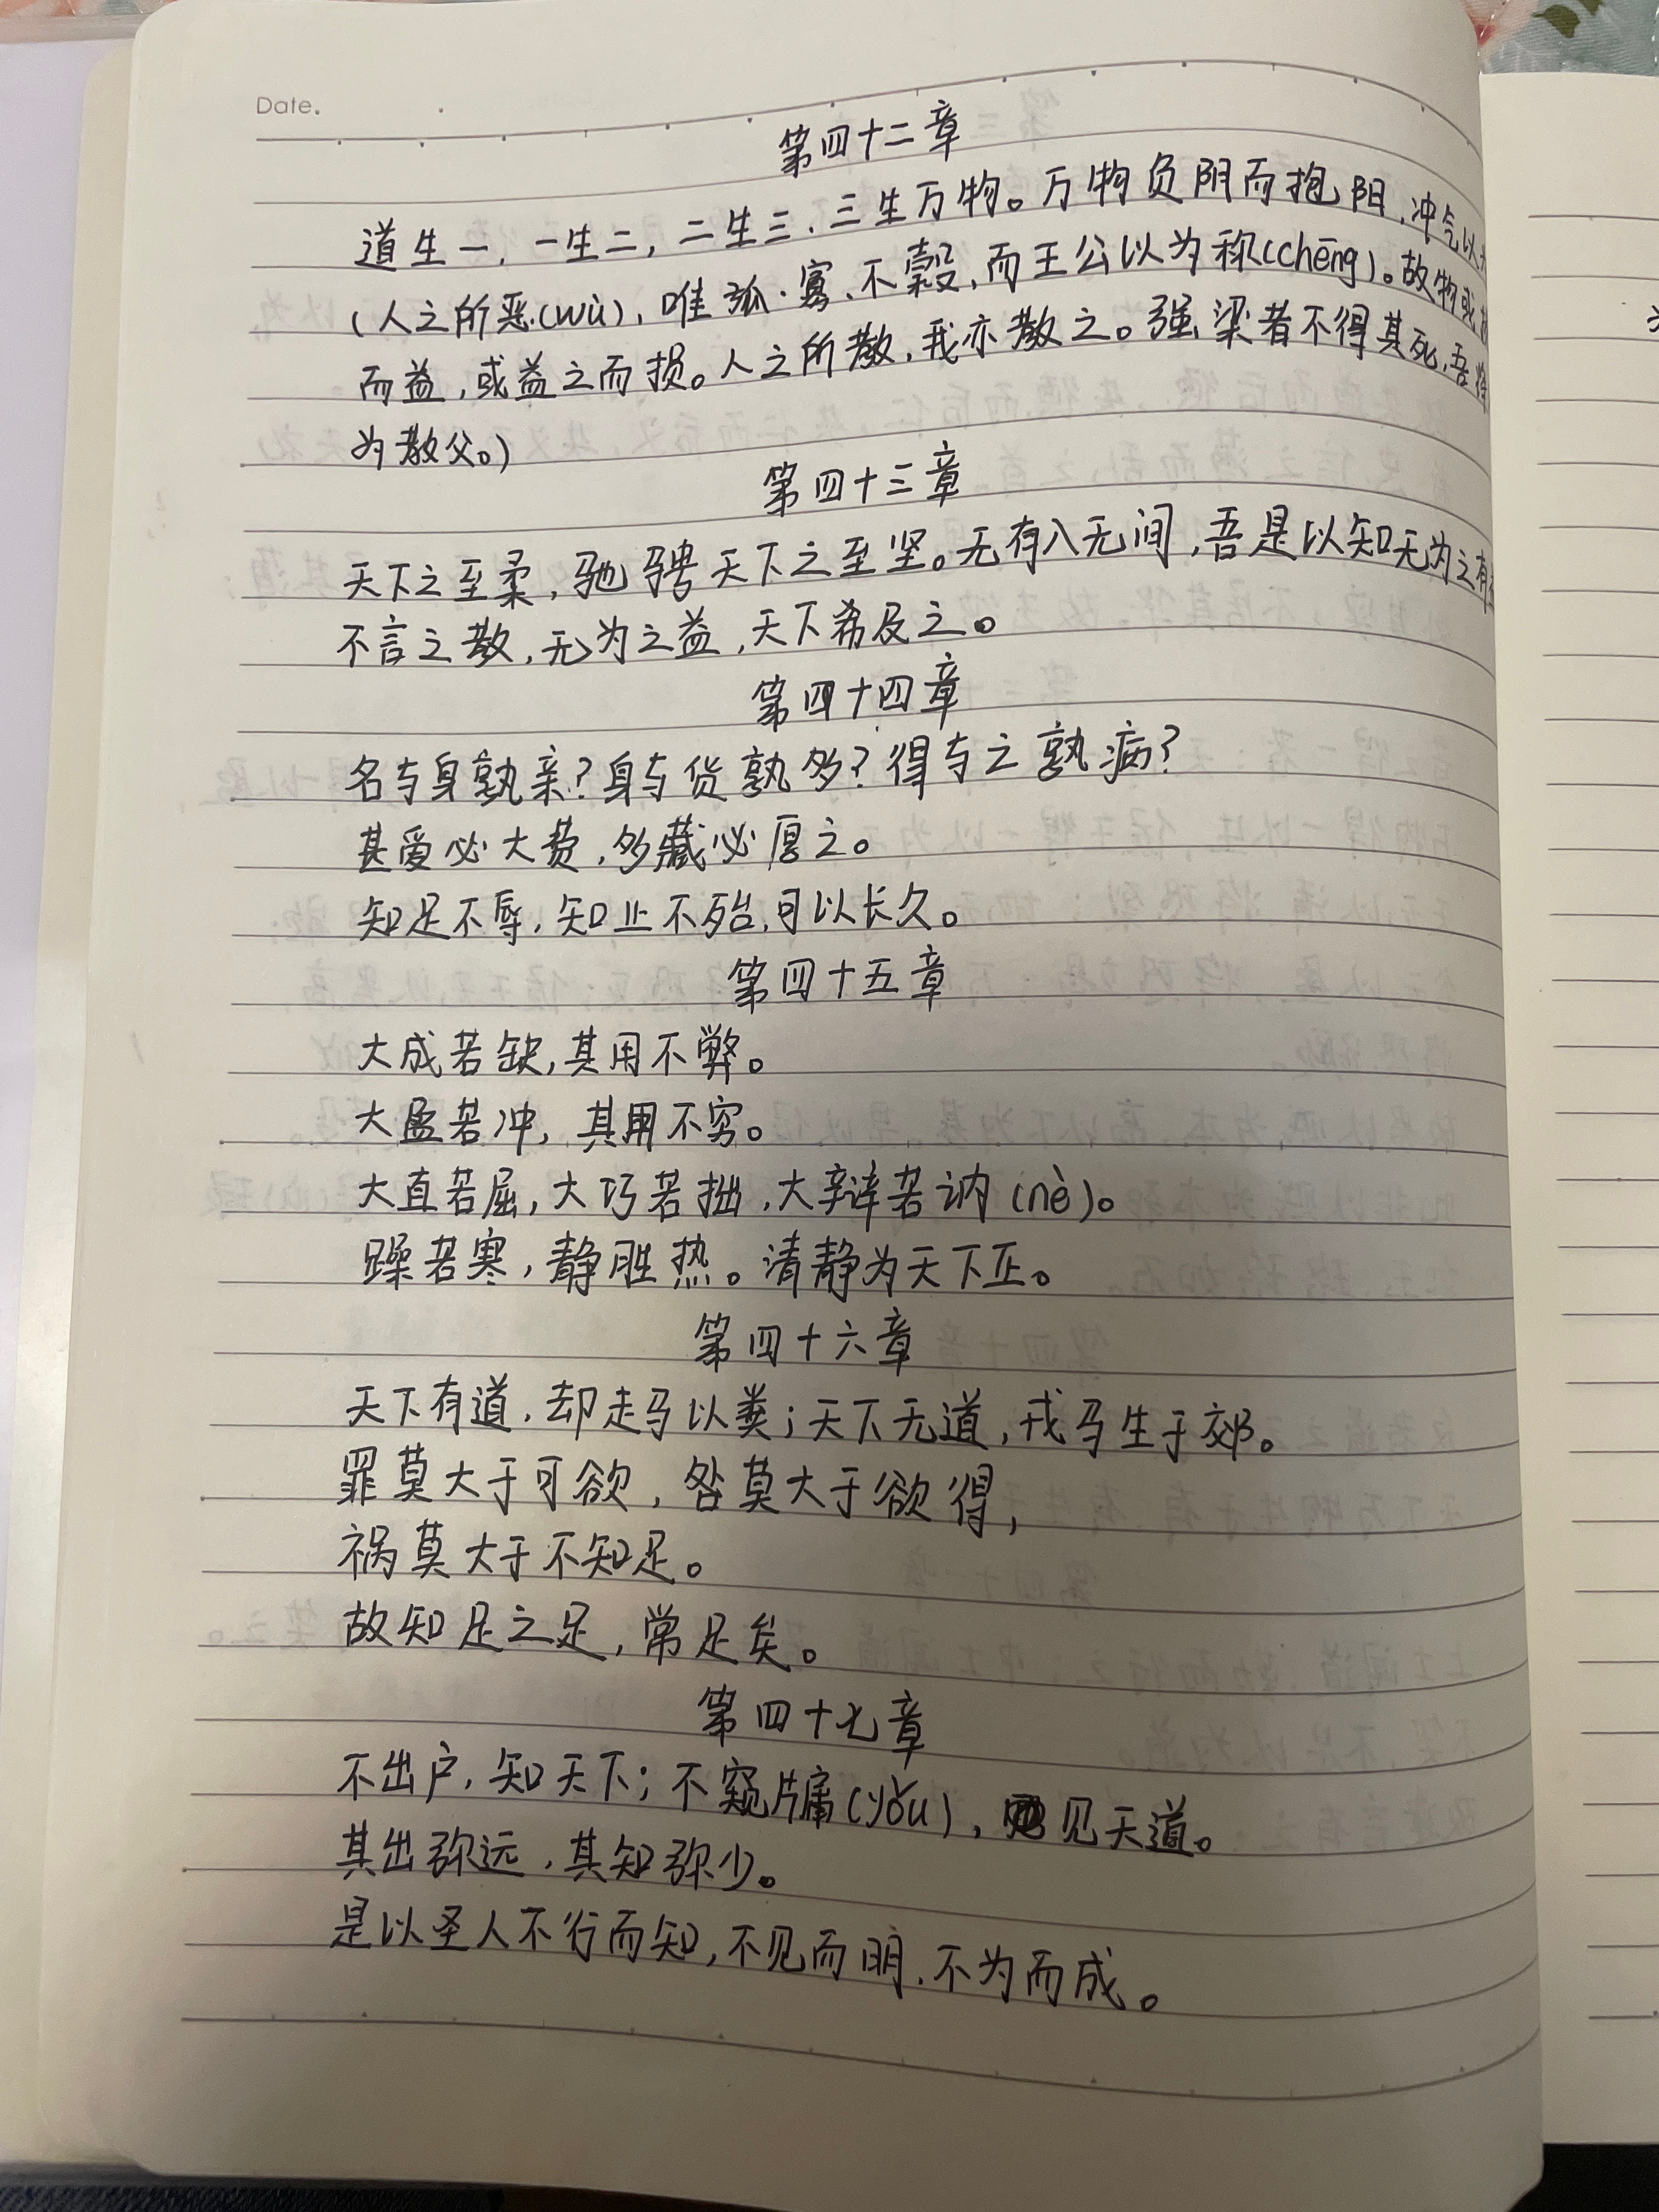 Date.
第四十二章
道生一，一生二，二生三、三生万物。万物负阴而抱阳，冲气以
(人之所恶(wù)，唯孤·寡、不穀，而王公以为称(chēng)。故物或
而益，或益之而损。人之所教，我亦教之。强梁者不得其死，吾将
为教父。)
第四十三章
天下之至柔，驰骋天下之至坚。无有入无间，吾是以知无为之有
不言之教，无为之益，天下希及之。
第四十四章
名与身孰亲？身与货孰多？得与亡孰病？
甚爱必大费，多藏必厚亡。
知足不辱，知止不殆，可以长久。
第四十五章
大成若缺，其用不弊。
大盈若冲，其用不穷。
大直若屈，大巧若拙，大辩若讷(nè)。
躁若寒，静胜热。清静为天下正。
第四十六章
天下有道，却走马以粪；天下无道，戎马生于郊。
罪莫大于可欲，咎莫大于欲得，
祸莫大于不知足。
故知足之足，常足矣。
第四十七章
不出户，知天下；不窥牖(yǒu)，见天道。
其出弥远，其知弥少。
是以圣人不行而知，不见而明，不为而成。